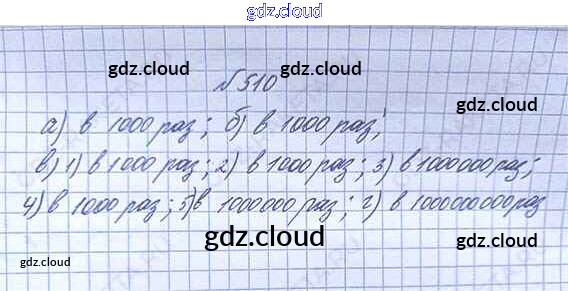 gdz.cloud
gdz.cloud gdz.cloud
№510
а) в 1000 раз; б) в 1000 раз;
в) 1) в 1000 раз; 2) в 1000 раз; 3) в 1000000 раз;
4) в 1000 раз; 5) в 1000000 раз; г) в 1000000000 раз
gdz.cloud
gdz.cloud gdz.cloud